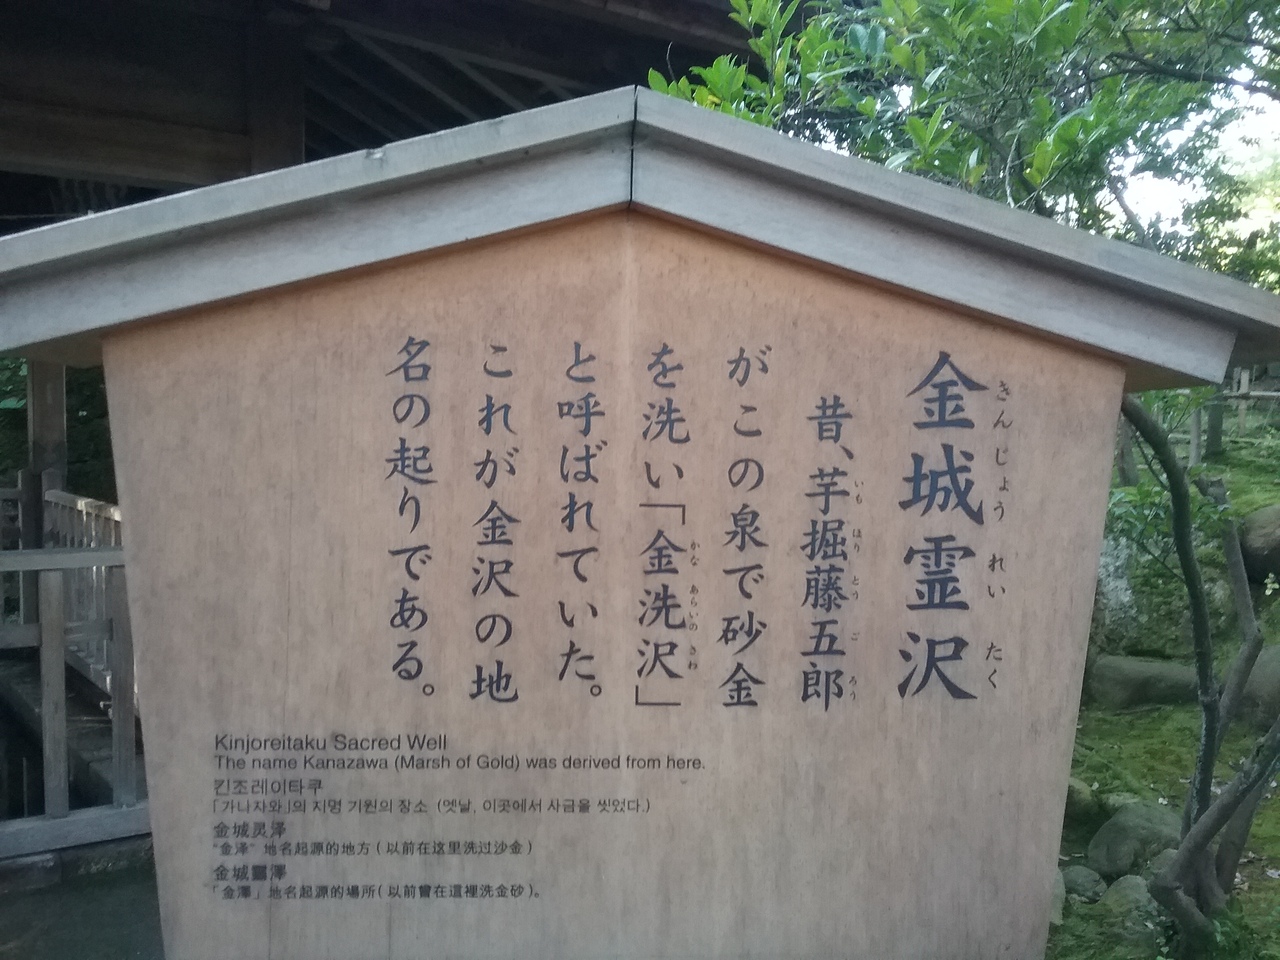 金城霊沢
きんじょうれいたく
昔、芋掘藤五郎
いもほりとうごろう
がこの泉で砂金
を洗い「金洗沢」
かなあらいのさわ
と呼ばれていた。
これが金沢の地
名の起りである。
Kinjoreitaku Sacred Well
The name Kanazawa (Marsh of Gold) was derived from here.
킨조레이타쿠
「가나자와」의 지명 기원의 장소 (옛날, 이곳에서 사금을 씻었다.)
金城灵泽
"金泽" 地名起源的地方 ( 以前在这里洗过沙金 )
金城靈澤
「金澤」地名起源的場所 ( 以前曾在這裡洗金砂 )。